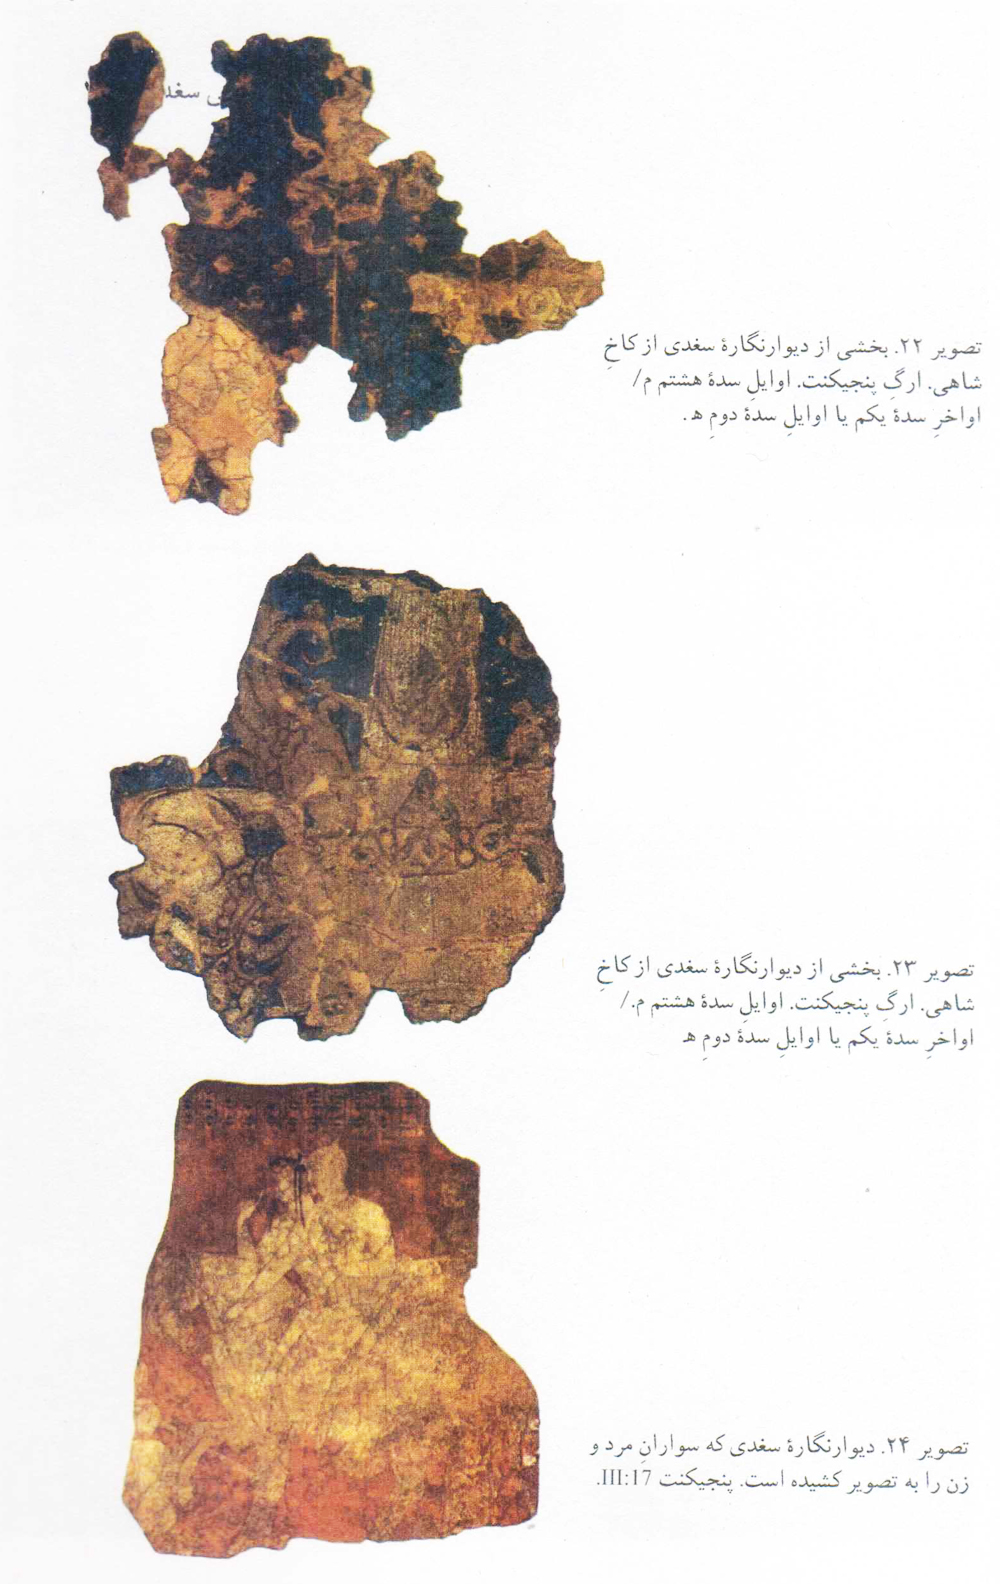 ی سغد
تصویر ۲۲. بخشی از دیوارنگارهٔ سغدی از کاخِ
شاهی. ارگِ پنجیکنت. اوایلِ سدهٔ هشتم م/
اواخرِ سدهٔ یکم یا اوایلِ سدهٔ دومِ ه.
تصویر ۲۳. بخشی از دیوارنگارهٔ سغدی از کاخِ
شاهی. ارگِ پنجیکنت. اوایلِ سدهٔ هشتم م./
اواخرِ سدهٔ یکم یا اوایلِ سدهٔ دومِ ه‍
تصویر ۲۴. دیوارنگارهٔ سغدی که سوارانِ مرد و
زن را به تصویر کشیده است. پنجیکنت III:17.